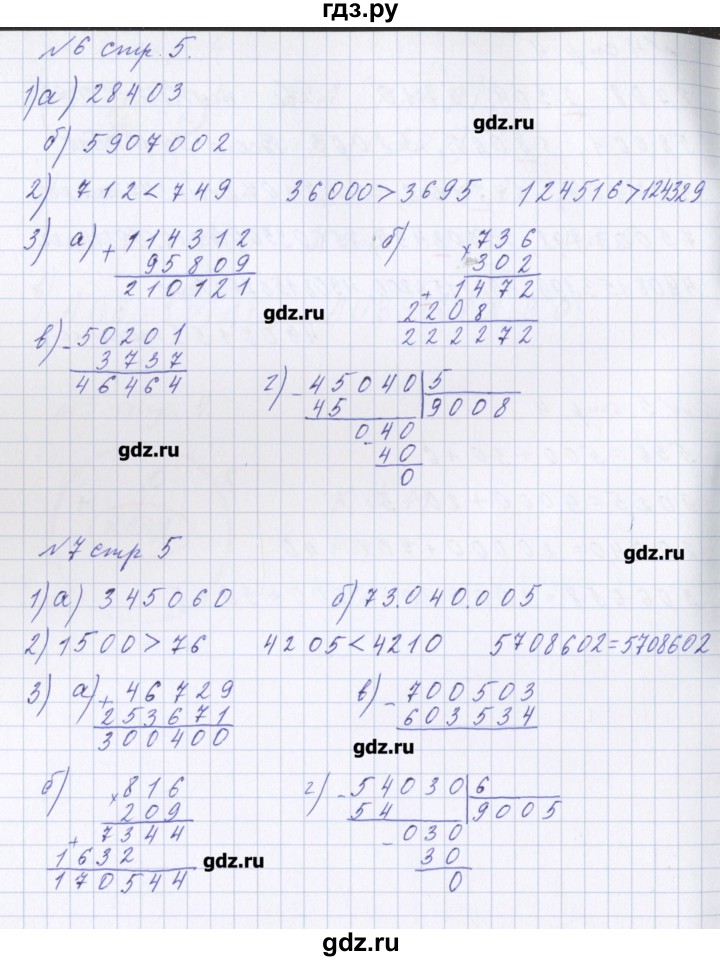 гдз.ру
№6 стр. 5.
1) а) 28403
gdz.ru
б) 5907002
2) 712 < 749 36000 > 3695 124516 > 124329
3) а) + 114312
95809
210121
б) × 736
302
+ 1472
2208
222272
gdz.ru
в) - 50201
3737
46464
г) - 45040 | 5
45 9008
040
- 40
0
gdz.ru
№7 стр 5
gdz.ru
1) а) 345060 б) 73.040.005
2) 1500 > 76 4205 < 4210 5708602 = 5708602
3) а) + 46729
253671
300400
в) - 700503
603534
gdz.ru
б) × 816
209
+ 7344
1632
170544
г) - 54030 | 6
54 9005
- 030
30
0
gdz.ru
gdz.ru